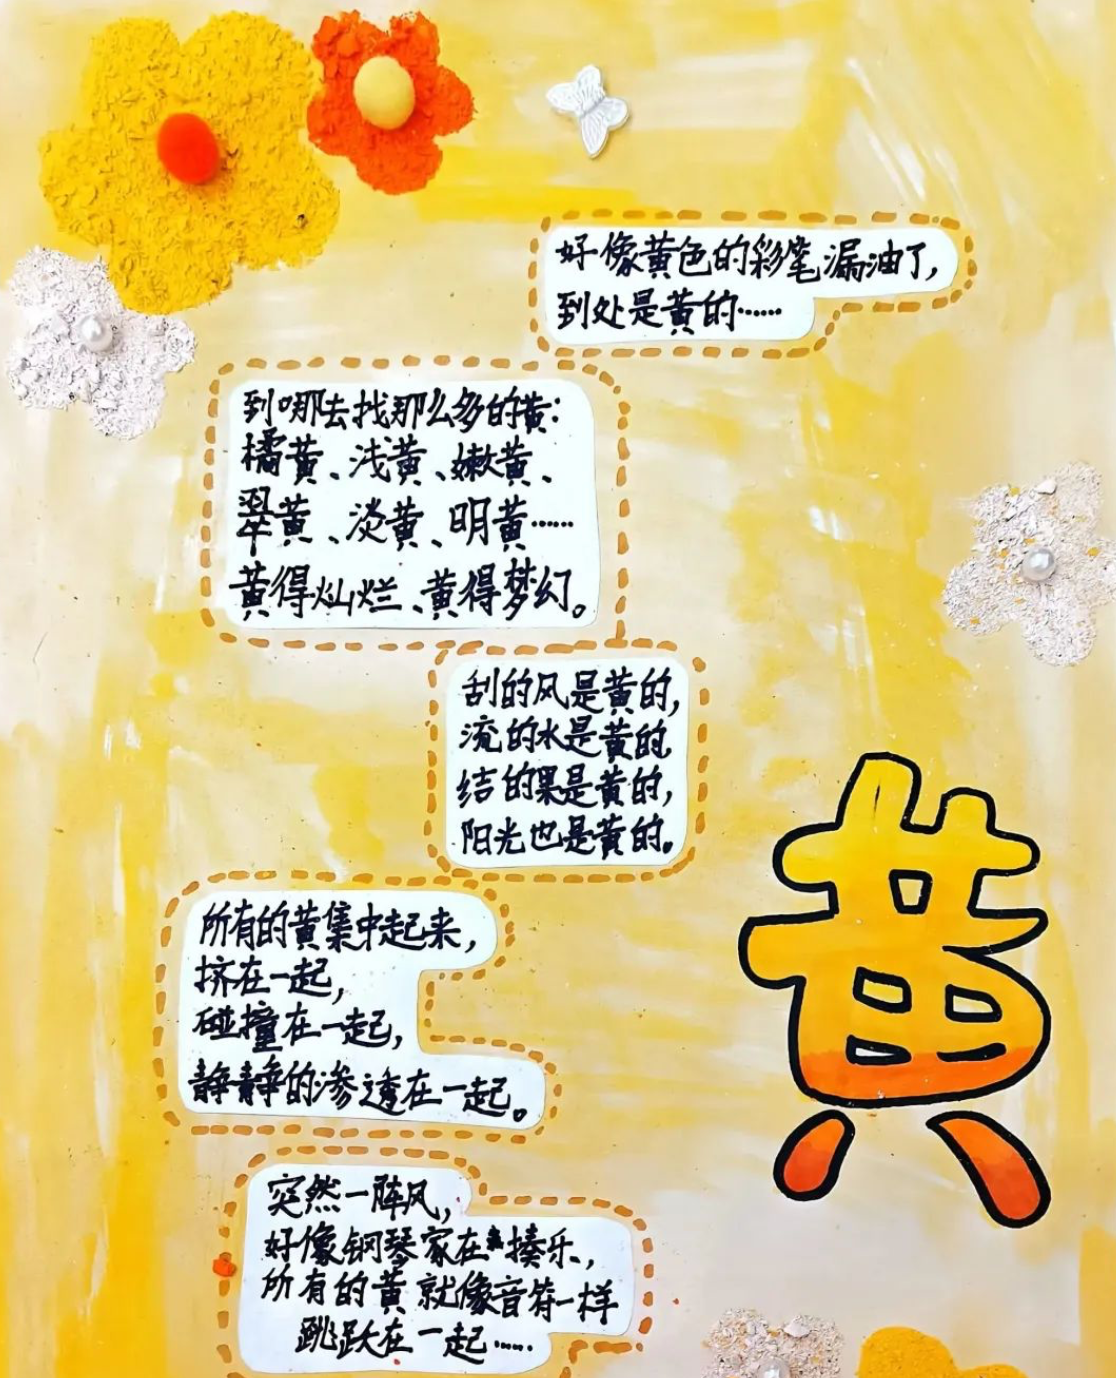 好像黄色的彩笔漏油了，
到处是黄的……
到哪去找那么多的黄：
橘黄、浅黄、嫩黄、
翠黄、淡黄、明黄……
黄得灿烂、黄得梦幻。
刮的风是黄的，
流的水是黄的
结的果是黄的，
阳光也是黄的。
黄
所有的黄集中起来，
挤在一起，
碰撞在一起，
静静的渗透在一起。
突然一阵风，
好像钢琴家在揍乐，
所有的黄就像音符一样
跳跃在一起……